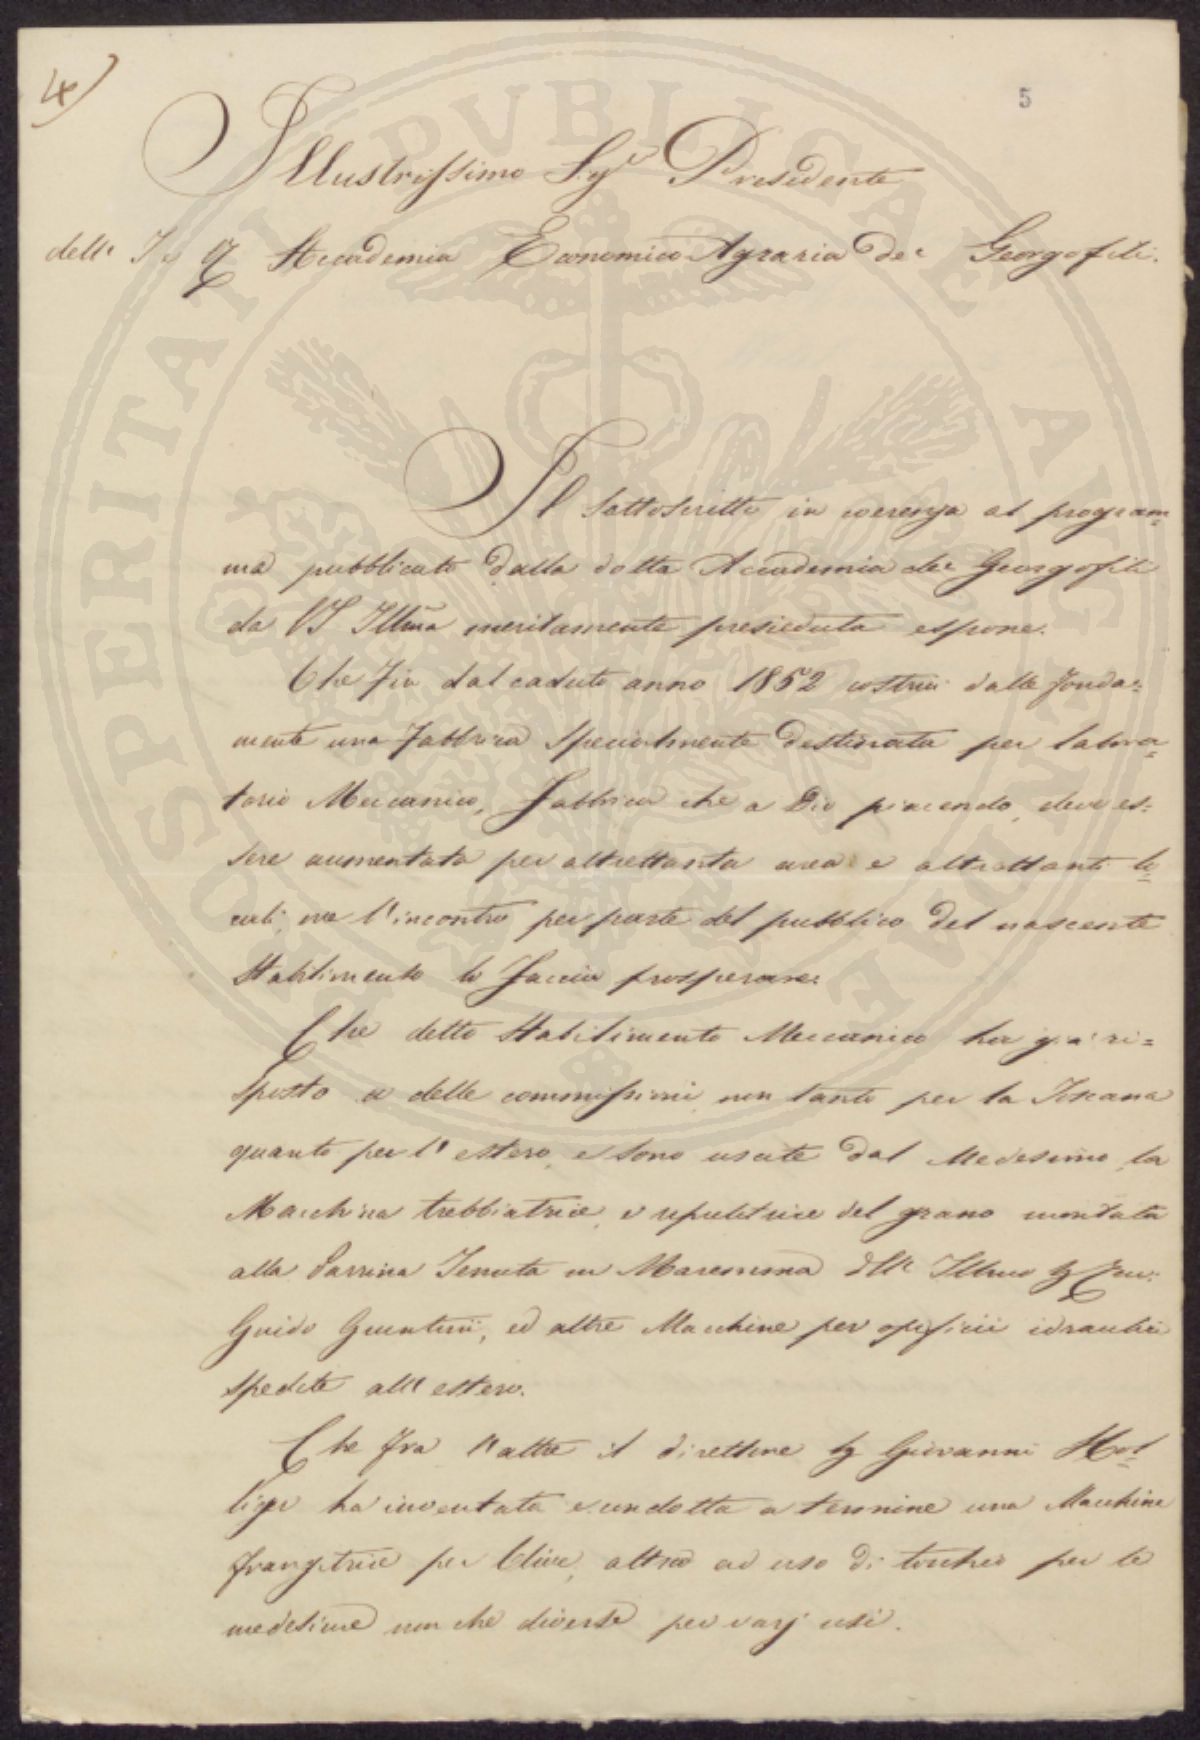 4)
5
Illustrissimo Sigr Presidente
dell' I. e R. Accademia Economico Agraria de' Georgofili.
Il sottoscritto in coerenza al program=
ma pubblicato dalla dotta Accademia de' Georgofili
da VS Illma meritamente presieduta espone.
Che fin dal caduto anno 1852 costruì dalle fonda=
menta una Fabbrica specialmente destinata per labora=
torio Meccanico, Fabbrica che a Dio piacendo, deve es=
sere aumentata per altrettanta area e altrettanti lo=
cali, ove l'incontro per parte del pubblico del nascente
Stabilimento lo faccia prosperare.
Che detto Stabilimento Meccanico ha già ri=
sposto a delle commissioni non tanto per la Toscana
quanto per l'estero, e sono uscite dal Medesimo la
Macchina trebbiatrice, e ripulitrice del grano montata
alla Parrina Tenuta in Maremma dell' Illmo Sig
Guido Giuntini, ed altre Macchine per opificii idraulici
spedite all'estero.
Che fra l'altre il direttore Sig Giovanni Hol=
liger ha inventata e condotta a termine una Macchina
frangitrice per Olive, altra ad uso di torchio per le
medesime non che diverse per varj usi.
PROSPERITATI PVBLICAE AVGENDAE